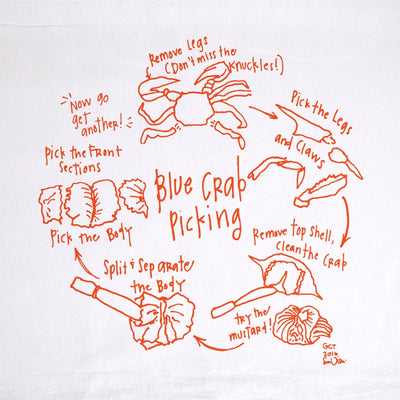 Remove Legs
(Don't miss the
Knuckles!)
Pick the Legs
and Claws
Remove top shell,
Clean the Crab
try the
mustard!
Split & Separate
the Body
Pick the Body
Pick the Front
Sections
Now go
get
another!
Blue Crab
Picking
GCT
2016